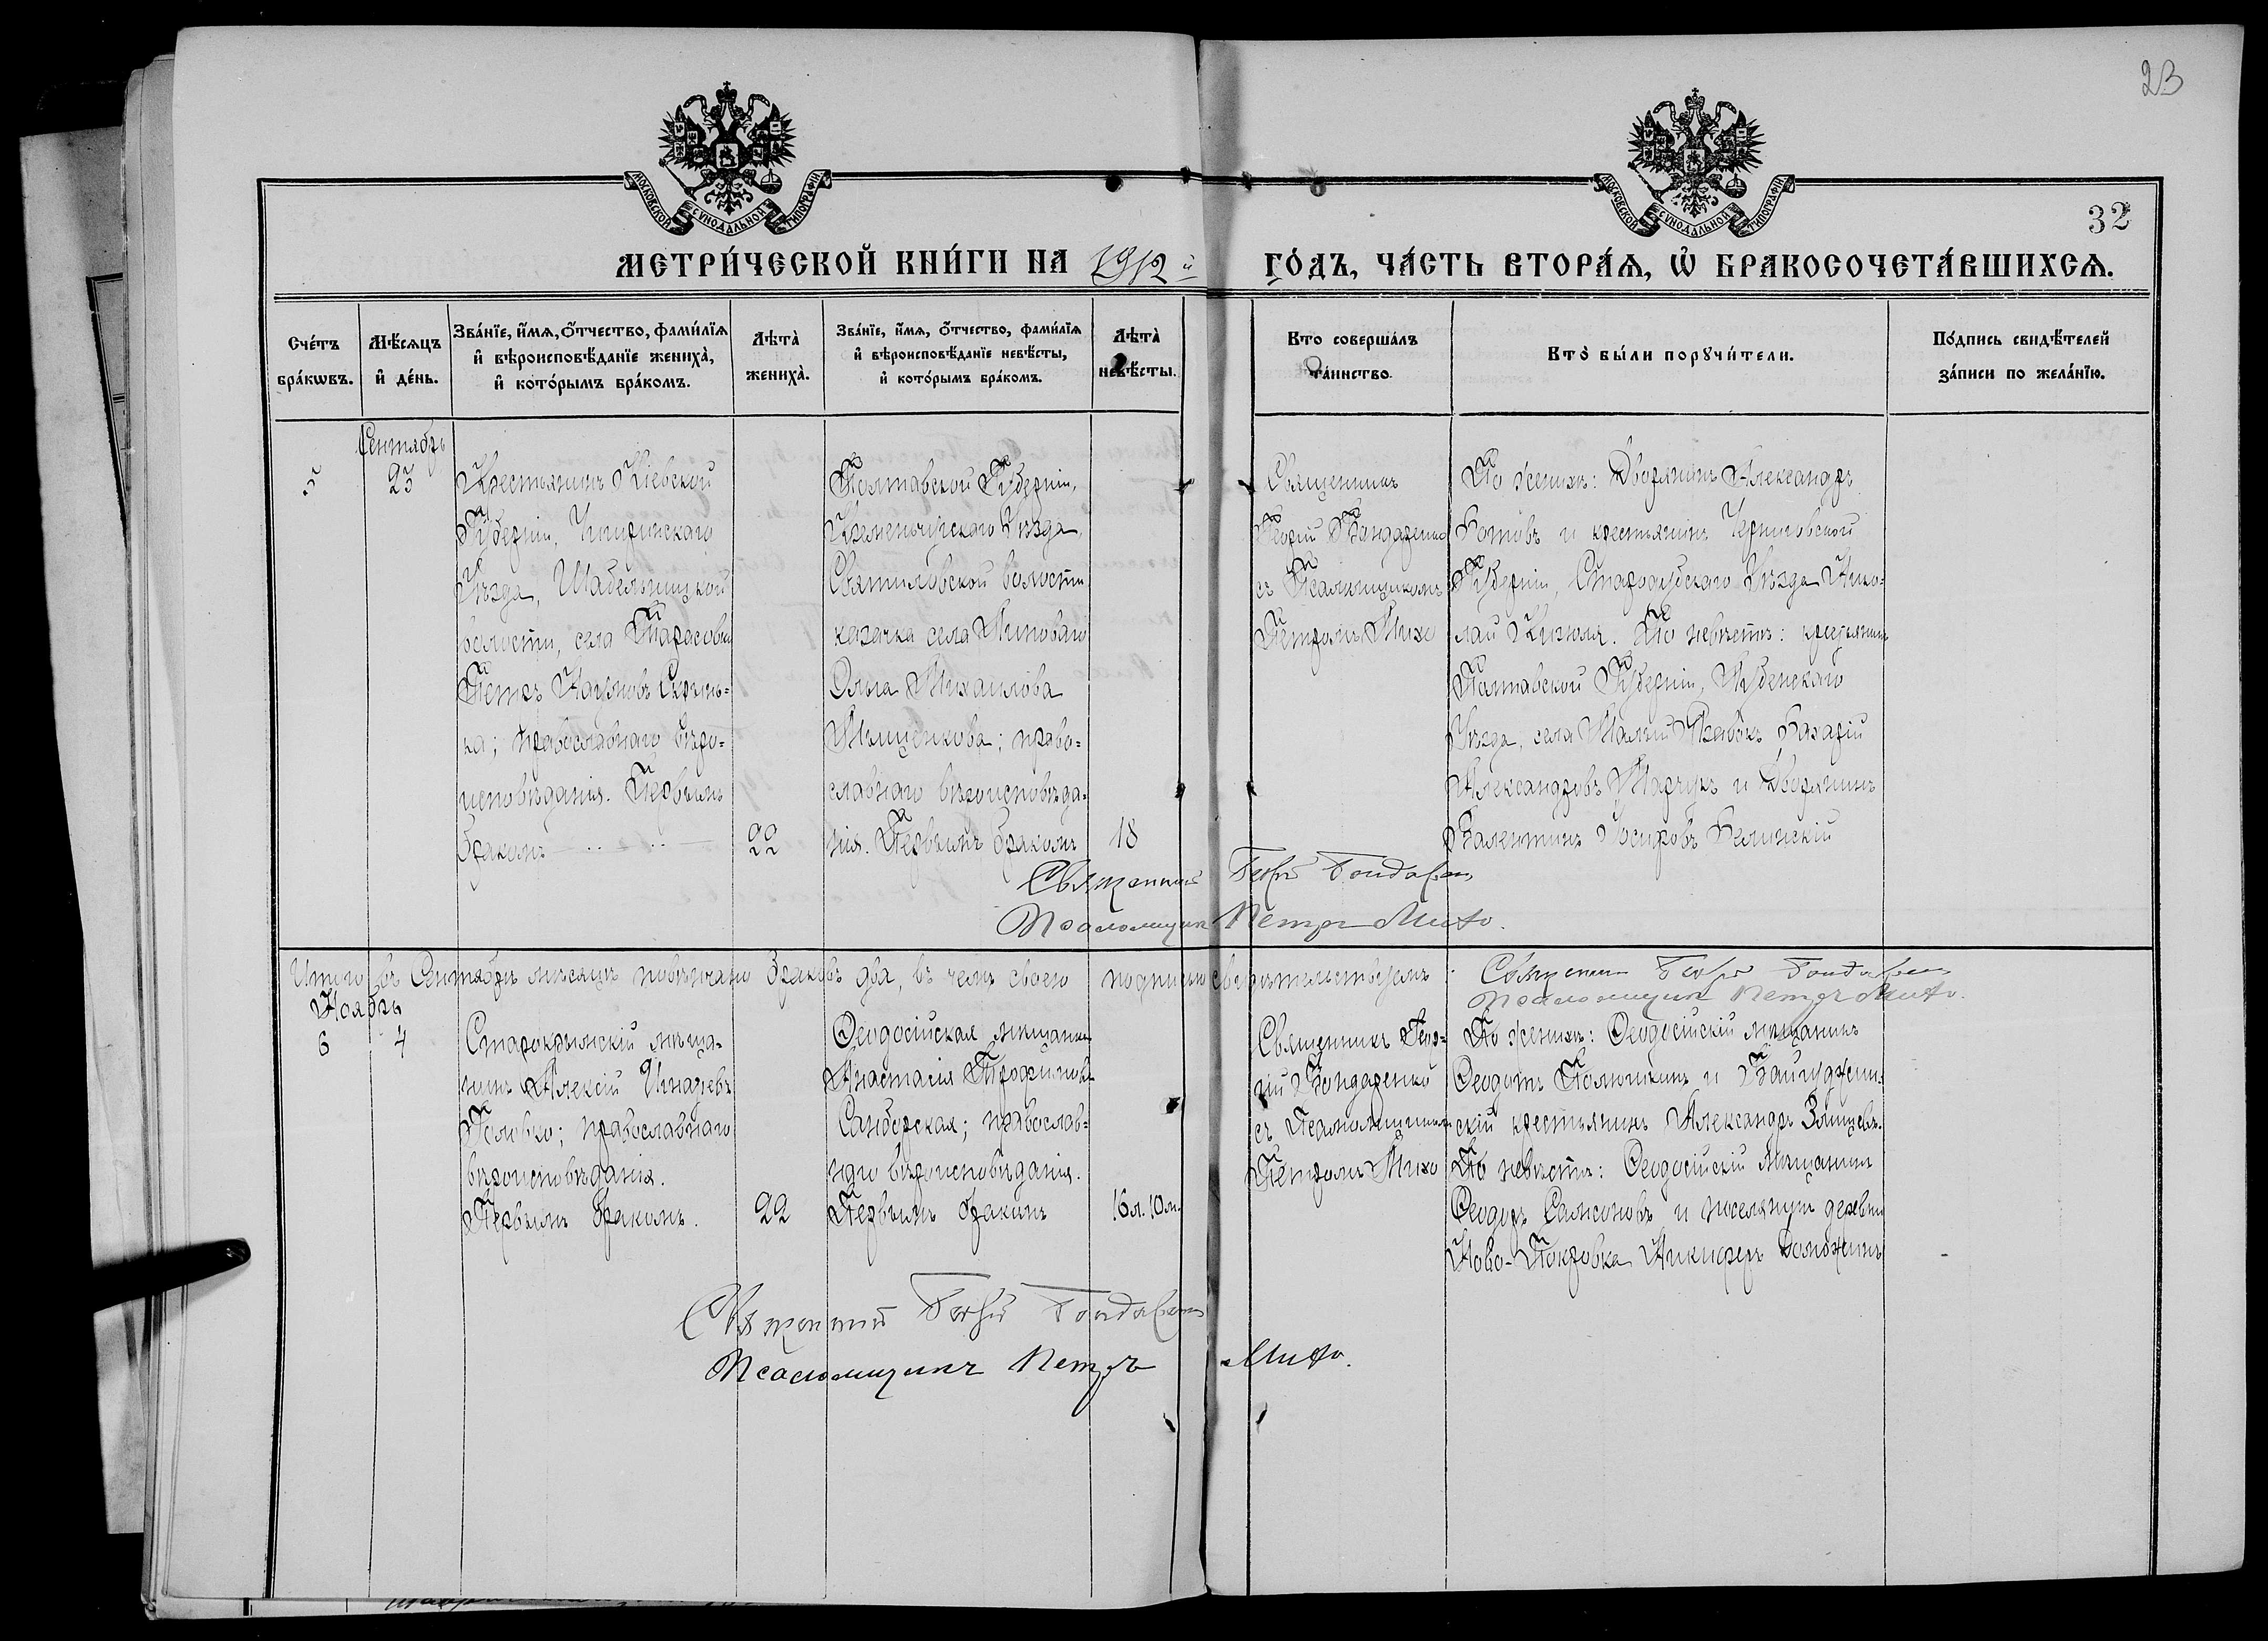 23
МОСКОВСКОЙ СѴНОДАЛЬНОЙ ТИПОГРАФІИ
МОСКОВСКОЙ СѴНОДАЛЬНОЙ ТИПОГРАФІИ
32
МЕТРИ́ЧЕСКОЙ КНИ́ГИ НА 1912й ГО́ДЪ, ЧА́СТЬ ВТОРА́Ѧ, Ѽ БРАКОСОЧЕТА́ВШИХСѦ.
Сче́тъ бра́кωвъ.
Мѣ́сѧцъ и҆ де́нь.
Зва́нїе, и҆́мѧ, ѻ҆́тчество, фами́лїѧ
и҆ вѣроисповѣ́данїе жениха̀,
и҆ кото́рымъ бра́комъ.
Лѣта̀ жениха̀.
Зва́нїе, и҆́мѧ, ѻ҆́тчество, фами́лїѧ
и҆ вѣроисповѣ́данїе невѣ́сты,
и҆ кото́рымъ бра́комъ.
Лѣта̀ невѣ́сты.
Кто соверша́лъ
та́инство.
Кто̀ бы́ли порꙋчи́тели.
По́дпись свидѣ́телей
за́писи по жела́нїю.
Сентябрь
5
23
Крестьянинъ Кіевской
Губерніи, Чигиринскаго
Уѣзда, Шабельницкой
волости, села Тарасовки
Петръ Наумовъ Скрынь-
ка; православнаго вѣро-
исповѣданія. Первымъ
бракомъ
22
Полтавской Губерніи,
Кременчугскаго Уѣзда,
Святиловской волости
казачка села Липоваго
Ольга Михаилова
Мищенкова; право-
славнаго вѣроисповѣда-
нія. Первымъ бракомъ
18
Священникъ
Георгій Бондаренко
съ Псаломщикомъ
Петромъ Михо
По женихѣ: Дворянинъ Александръ
Котовъ и крестьянинъ Черниговской
Губерніи, Стародубскаго Уѣзда Нико-
лай Кизюля. По невѣстѣ: крестьянинъ
Полтавской Губерніи, Лубенскаго
Уѣзда, села Малый Назарій
Александровъ Марчукъ и Дворянинъ
Валентинъ Іосифовъ Белинскій
Священникъ Георгій Бондаренко
Псаломщикъ Петръ Михо.
Итого въ Сентябрѣ мѣсяцѣ повѣнчано браковъ два, въ чемъ своею подписью свидѣтельствуемъ: Священникъ Георгій Бондаренко
Псаломщикъ Петръ Михо.
Ноябрь
6
4
Старокрымскій мѣща-
нинъ Алексій Игнатьевъ
Головко; православнаго
вѣроисповѣданія.
Первымъ бракомъ.
22
Ѳеодосійская мѣщанка
Анастасія Трофимова
Самборская; православ-
наго вѣроисповѣданія.
Первымъ бракомъ
16 л. 10 м.
Священникъ Геор-
гій Бондаренко
съ Псаломщикомъ
Петромъ Михо
По женихѣ: Ѳеодосійскій мѣщанинъ
Ѳеодотъ Полюшкинъ и
скій крестьянинъ Александръ
По невѣстѣ: Ѳеодосійскій мѣщанинъ
Ѳеодоръ Самсоновъ и поселянинъ деревни
Ново-Покровка Никифоръ Воложинъ
Священникъ Георгій Бондаренко
Псаломщикъ Петръ Михо.